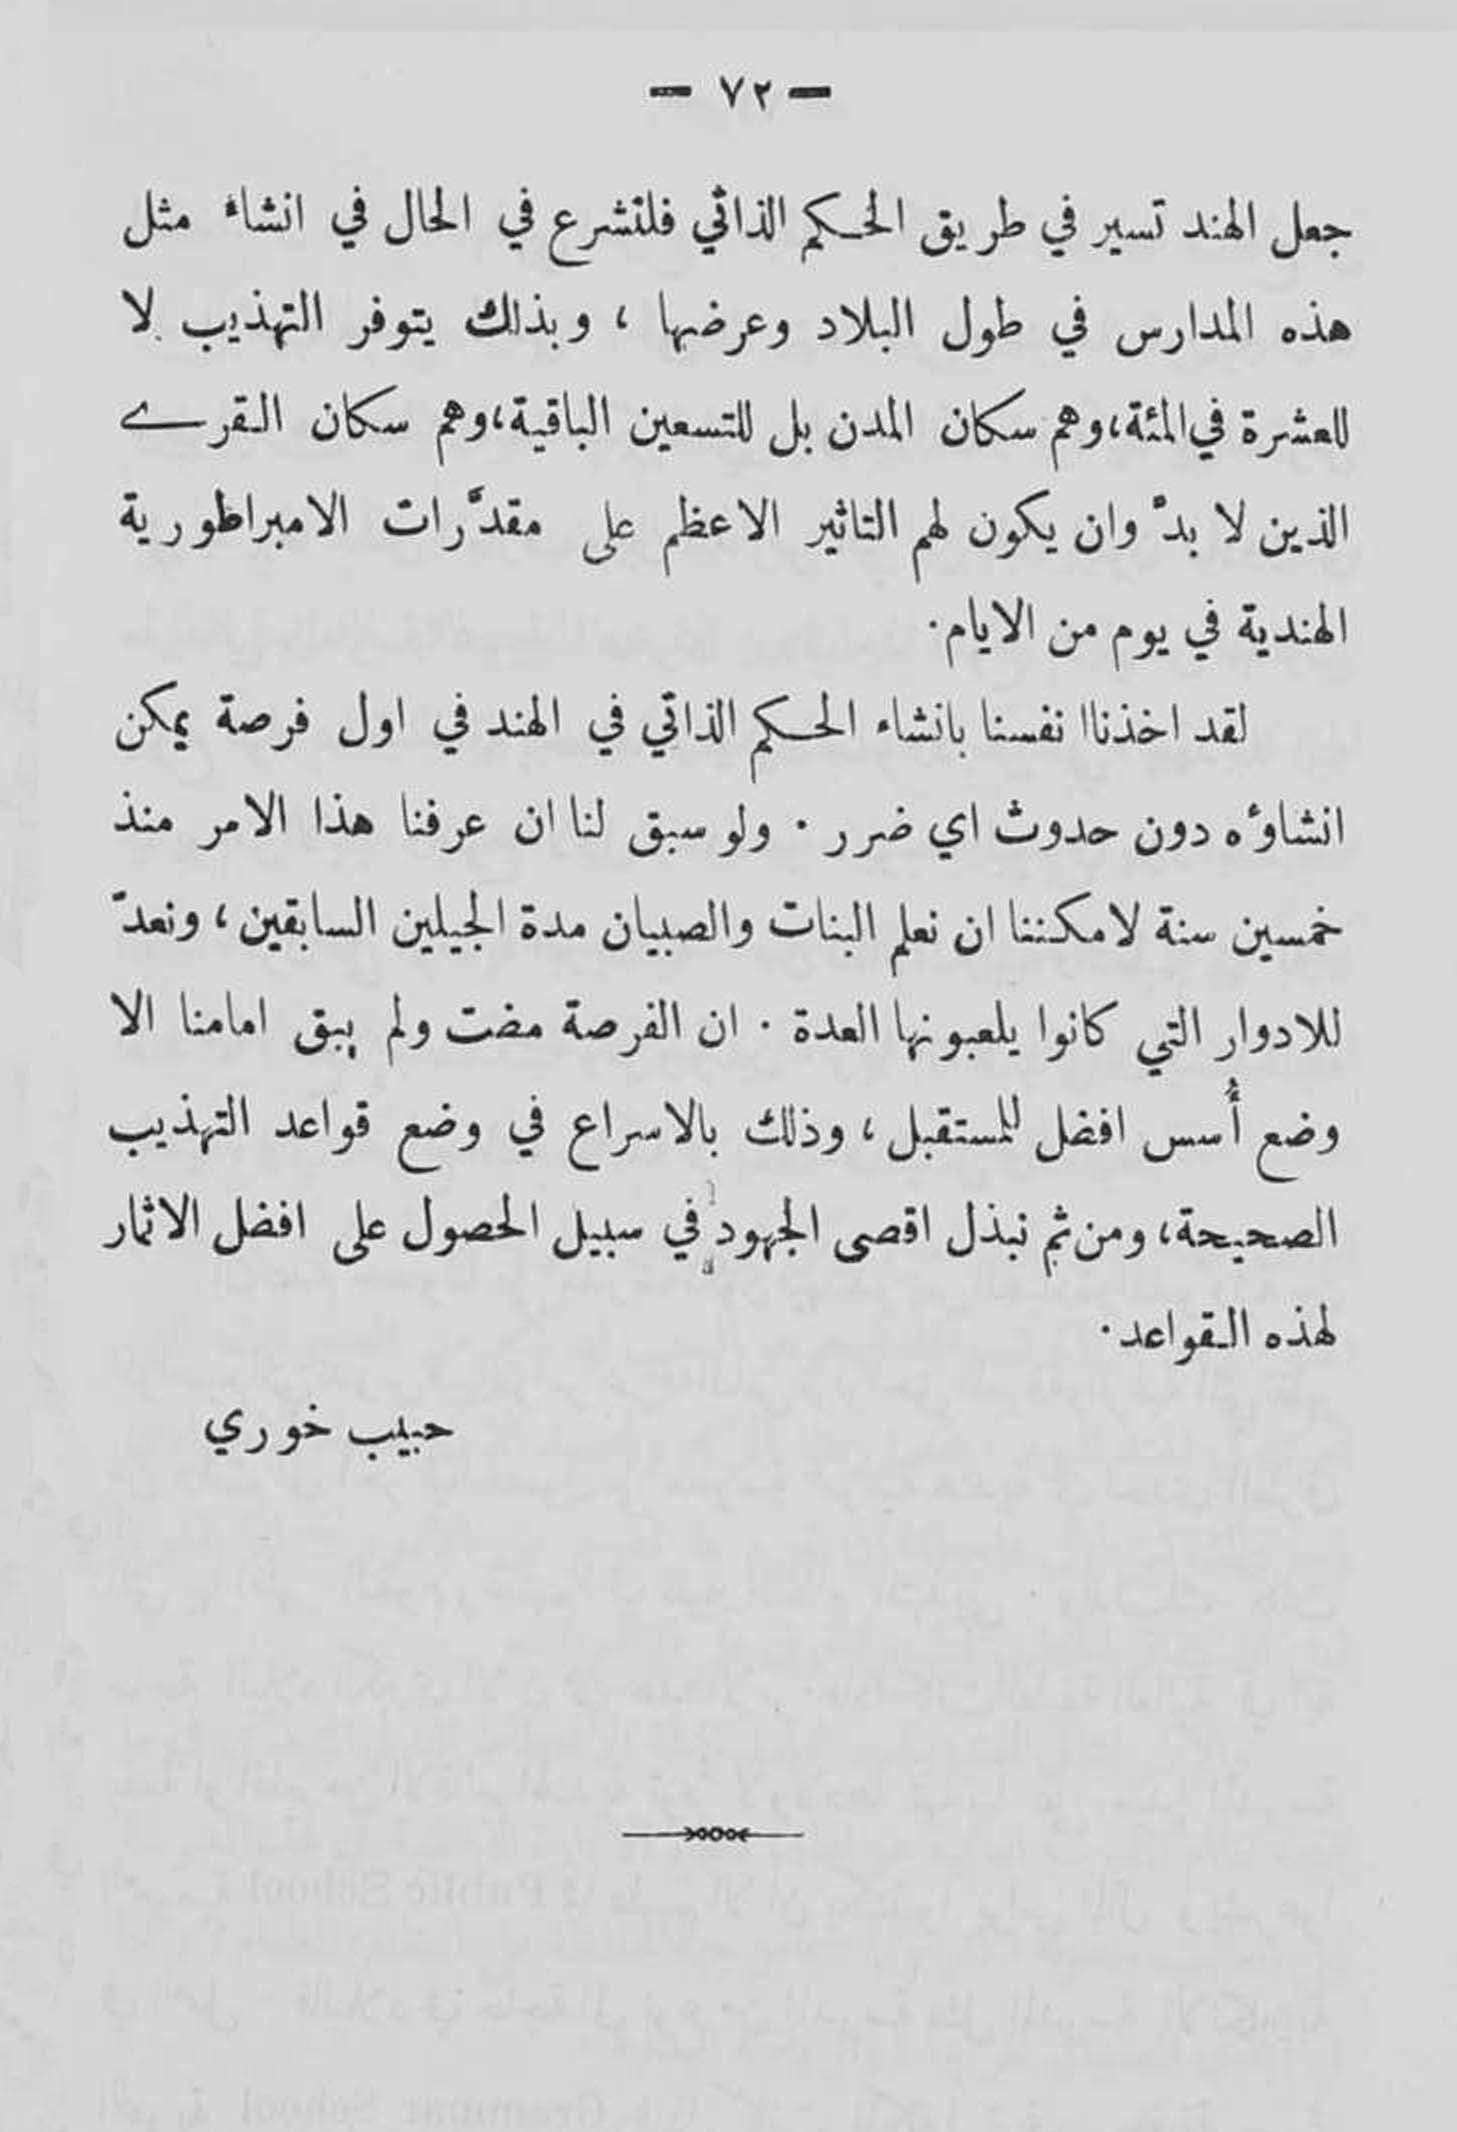 — ٧٢ —
جعل الهند تسير في طريق الحكم الذاتي فلتشرع في الحال في انشاء مثل
هذه المدارس في طول البلاد وعرضها ، وبذلك يتوفر التهذيب لا
للعشرة في المئة، وهم سكان المدن بل للتسعين الباقية، وهم سكان القرے
الذين لا بدّ وان يكون لهم التاثير الاعظم على مقدَّرات الامبراطورية
الهندية في يوم من الايام.
لقد اخذنا انفسنا بانشاء الحكم الذاتي في الهند في اول فرصة يمكن
انشاؤه دون حدوث اي ضرر . ولو سبق لنا ان عرفنا هذا الامر منذ
خمسين سنة لامكننا ان نعلم البنات والصبيان مدة الجيلين السابقين ، ونعدّ
للادوار التي كانوا يلعبونها العدة . ان الفرصة مضت ولم يبق امامنا الا
وضع أُسس افضل للمستقبل ، وذلك بالاسراع في وضع قواعد التهذيب
الصحيحة، ومن ثم نبذل اقصى الجهود في سبيل الحصول على افضل الاثمار
لهذه القواعد.
حبيب خوري